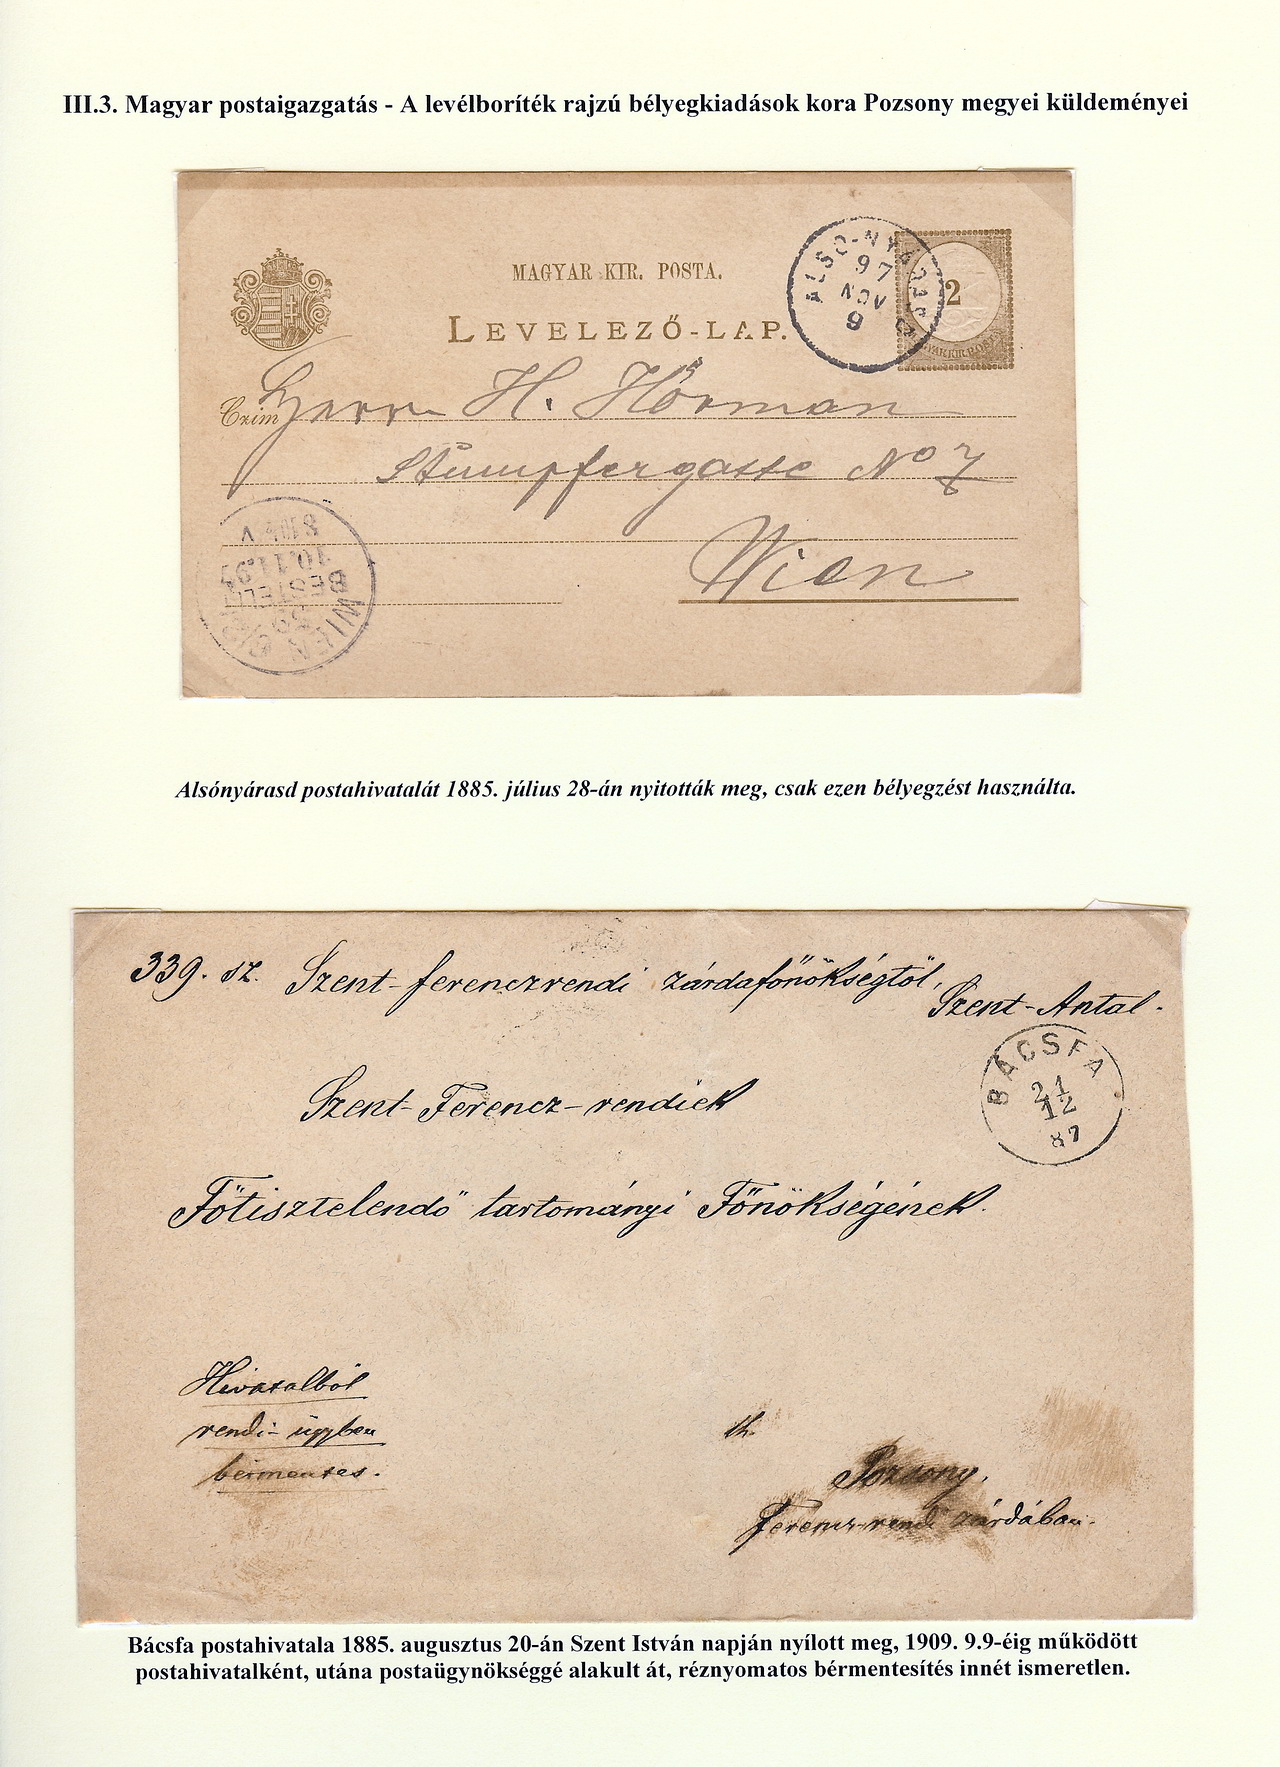 III.3. Magyar postaigazgatás - A levélboríték rajzú bélyegkiadások kora Pozsony megyei küldeményei
MAGYAR KIR. POSTA.
LEVELEZŐ-LAP.
ALSÓ-NYÁRASD
97
NOV
9
2
MAGYAR KIR. POSTA
Czim Herr H. Hörman
Stumpfergasse No 7
Wien
WIEN
BESTELLT
10.11.97
8
V
Alsónyárasd postahivatalát 1885. július 28-án nyitották meg, csak ezen bélyegzést használta.
339. sz. Szent-ferenczrendi zárdafőnökségtől,
Szent-Antal.
BÁCSFA
21
12
87
Szent-Ferencz-rendiek
Főtisztelendő tartományi Főnökségének.
Hivatalból
rendi-ügyben
bérmentes.
Pozsony,
Ferencz-rendi zárdában.
Bácsfa postahivatala 1885. augusztus 20-án Szent István napján nyílott meg, 1909. 9.9-éig működött
postahivatalként, utána postaügynökséggé alakult át, réznyomatos bérmentesítés innét ismeretlen.